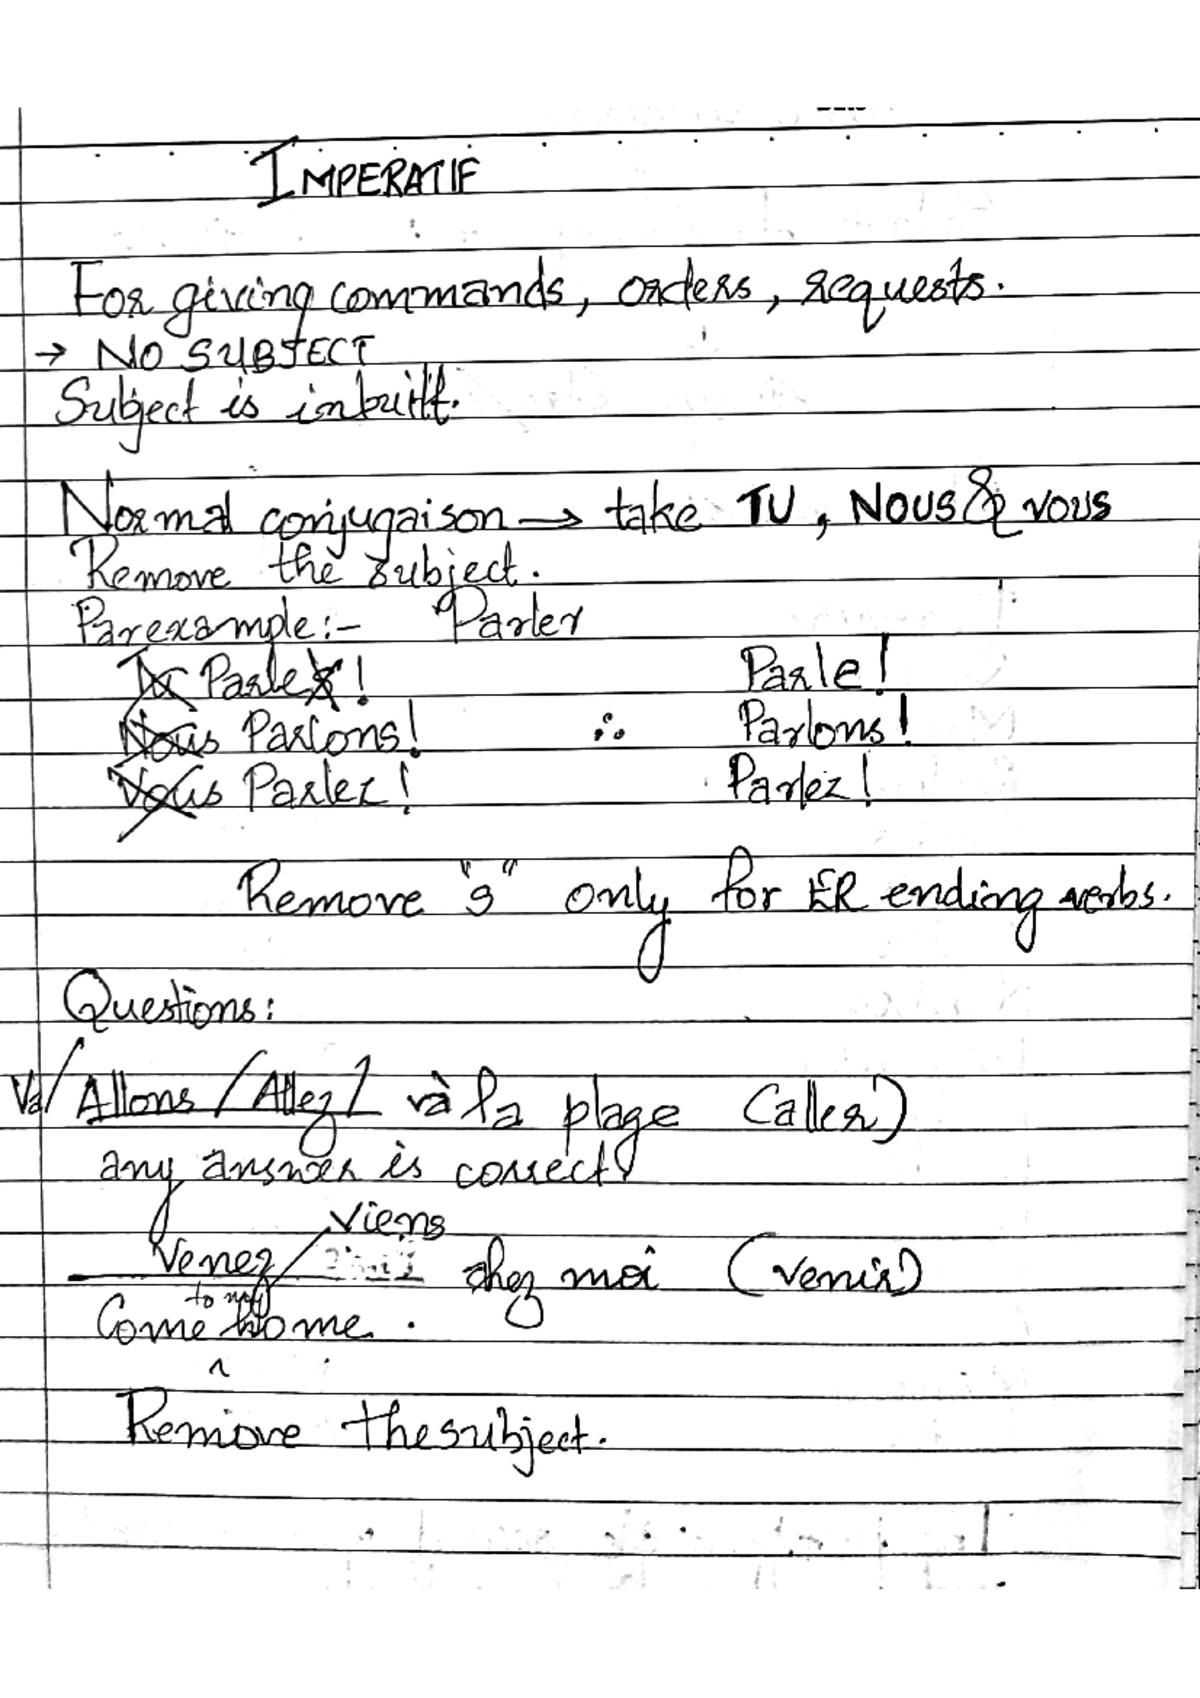 IMPERATIF
For giving commands, orders, requests.
→ NO SUBJECT
Subject is inbuilt.
Normal conjugaison → take TU, NOUS & VOUS
Remove the subject.
Par example:- Parler
Tu Parles! Parle!
Nous Parlons! ∴ Parlons!
Vous Parlez! Parlez!
Remove "s" only for ER ending verbs.
Questions:
Va/ Allons / Allez / và la plage (aller)
any answer is correct
Viens
Venez / chez moi (venir)
to my
Come home.
Remove the subject.